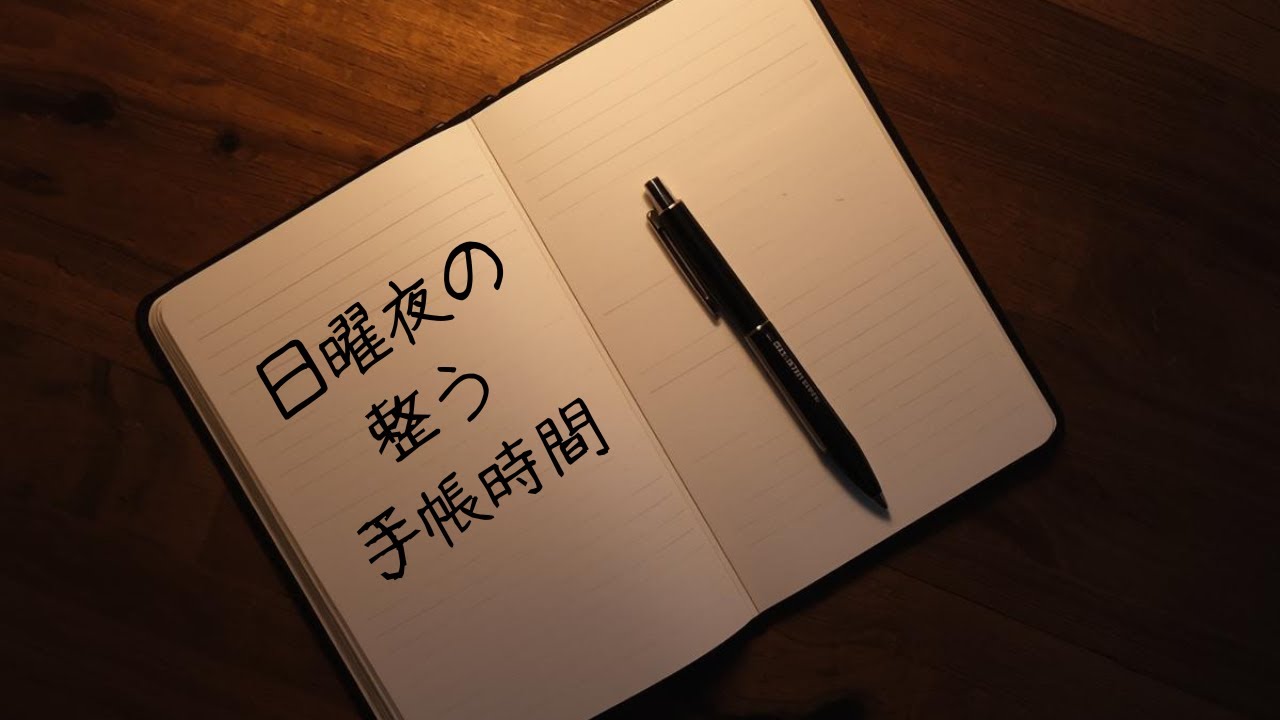 日曜夜の
整う
手帳時間